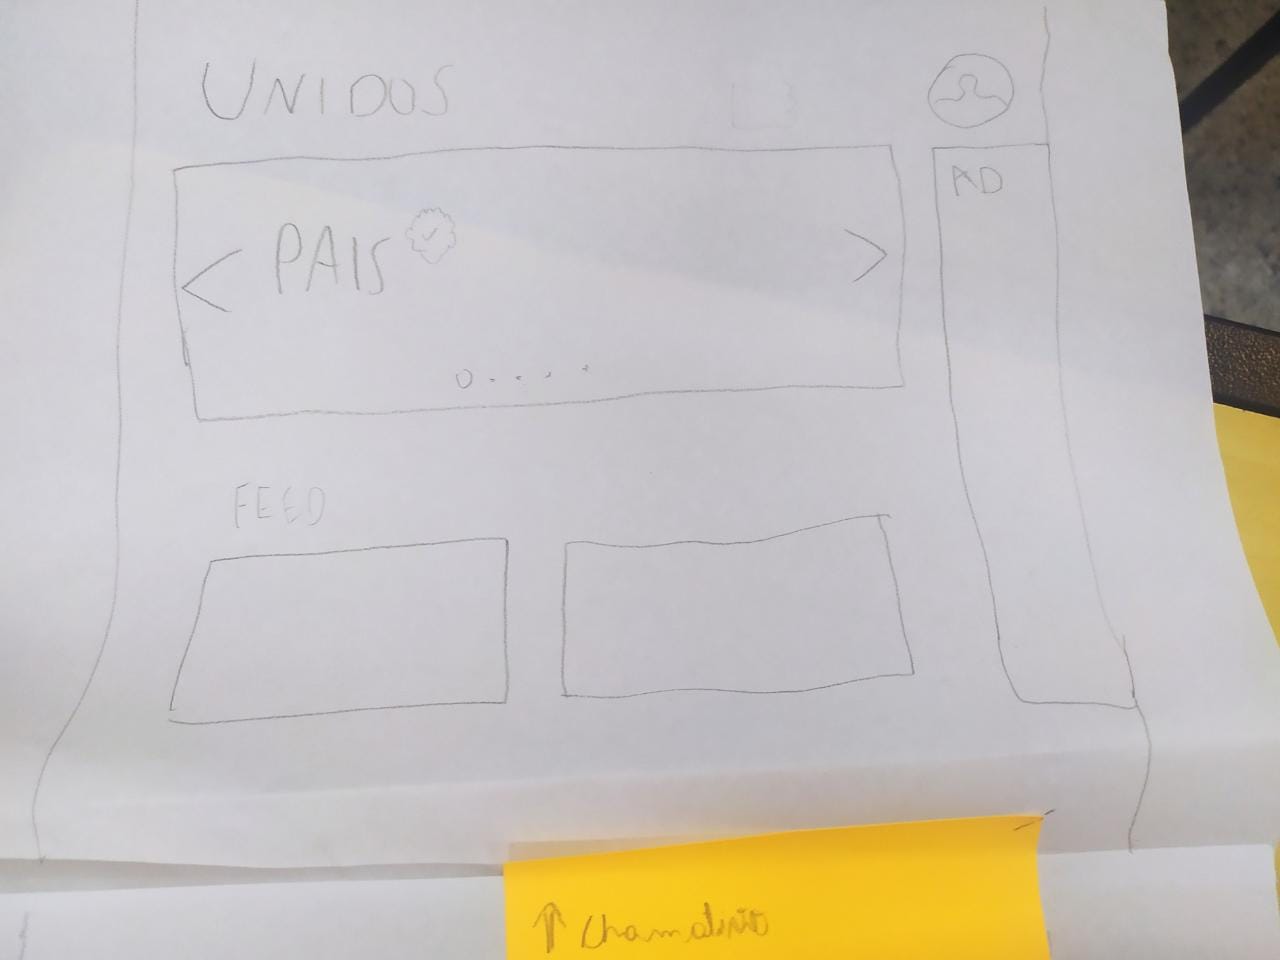 UNIDOS
AD
PAIS
FEED
↑ Chamativo